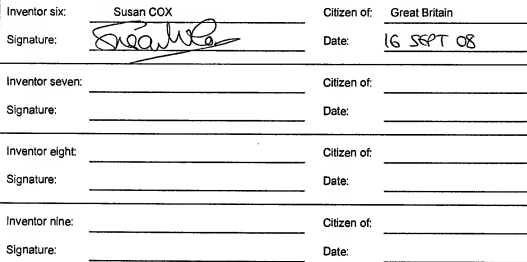 Inventor six: Susan COX Citizen of: Great Britain
Signature: Date: 16 SEPT 08
Inventor seven: Citizen of:
Signature: Date:
Inventor eight: Citizen of:
Signature: Date:
Inventor nine: Citizen of:
Signature: Date: